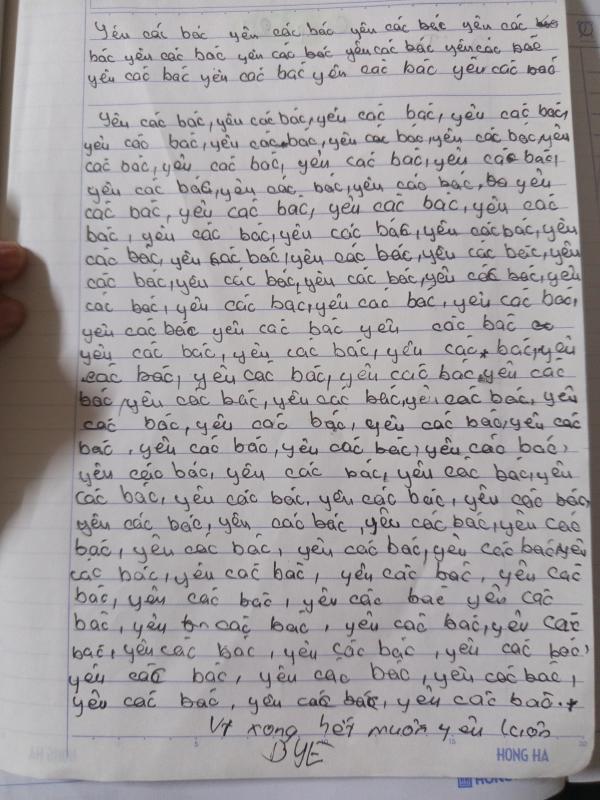 Yêu các bác yêu các bác yêu các bác yêu các
bác yêu các bác yêu các bác yêu các bác yêu các bác
yêu các bác yêu các bác yêu các bác yêu các bác
Yêu các bác, yêu các bác, yêu các bác, yêu các bác,
yêu các bác, yêu các bác, yêu các bác, yêu các bác, yêu
các bác, yêu các bác, yêu các bác, yêu các bác,
yêu các bác, yêu các bác, yêu các bác, yêu
các bác, yêu các bác, yêu các bác, yêu các
bác, yêu các bác, yêu các bác, yêu các bác, yêu
các bác, yêu các bác, yêu các bác, yêu các bác, yêu
các bác, yêu các bác, yêu các bác, yêu các bác, yêu
các bác, yêu các bác, yêu các bác, yêu các bác,
yêu các bác yêu các bác yêu các bác
yêu các bác, yêu các bác, yêu các bác, yêu
các bác, yêu các bác, yêu các bác, yêu các
bác, yêu các bác, yêu các bác, yêu các bác, yêu
các bác, yêu các bác, yêu các bác, yêu các
bác, yêu các bác, yêu các bác, yêu các bác,
yêu các bác, yêu các bác, yêu các bác, yêu
các bác, yêu các bác, yêu các bác, yêu các bác,
yêu các bác, yêu các bác, yêu các bác, yêu các
bác, yêu các bác, yêu các bác, yêu các bác, yêu
các bác, yêu các bác, yêu các bác, yêu các
bác, yêu các bác, yêu các bác yêu các
bác, yêu các bác, yêu các bác, yêu các
bác, yêu các bác, yêu các bác, yêu các bác,
yêu các bác, yêu các bác, yêu các bác,
yêu các bác, yêu các bác, yêu các bác.
Vt xong hết muốn yêu luôn
BYE
HONG HA